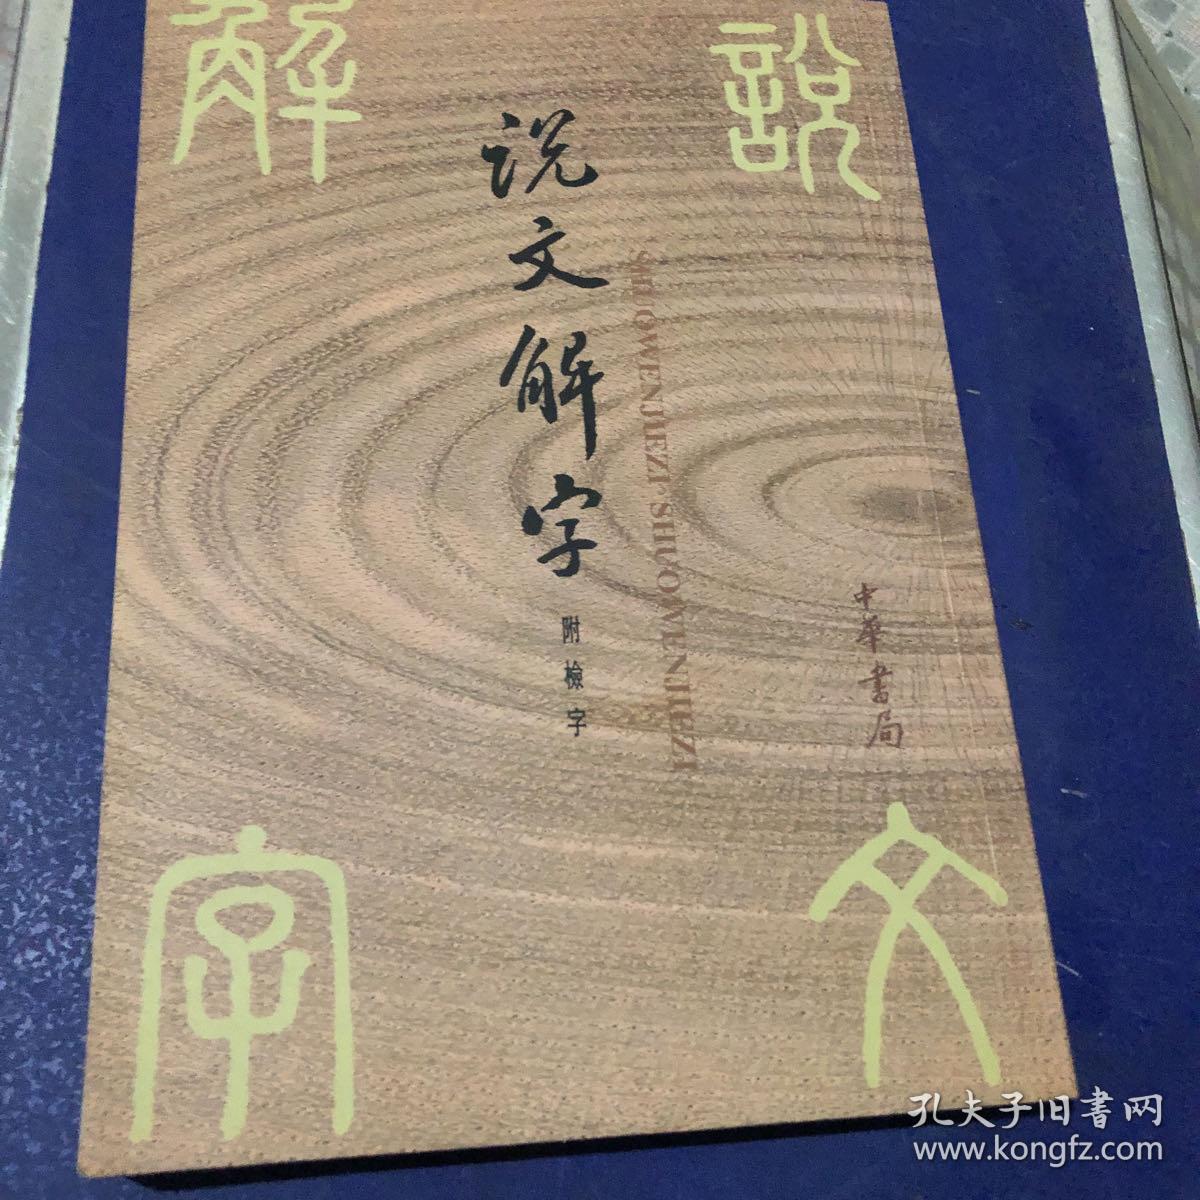 説文
解字
说文解字
附檢字
SHUOWENJIEZI·SHUOWENJIEZI
中華書局
孔夫子旧書网
www.kongfz.com